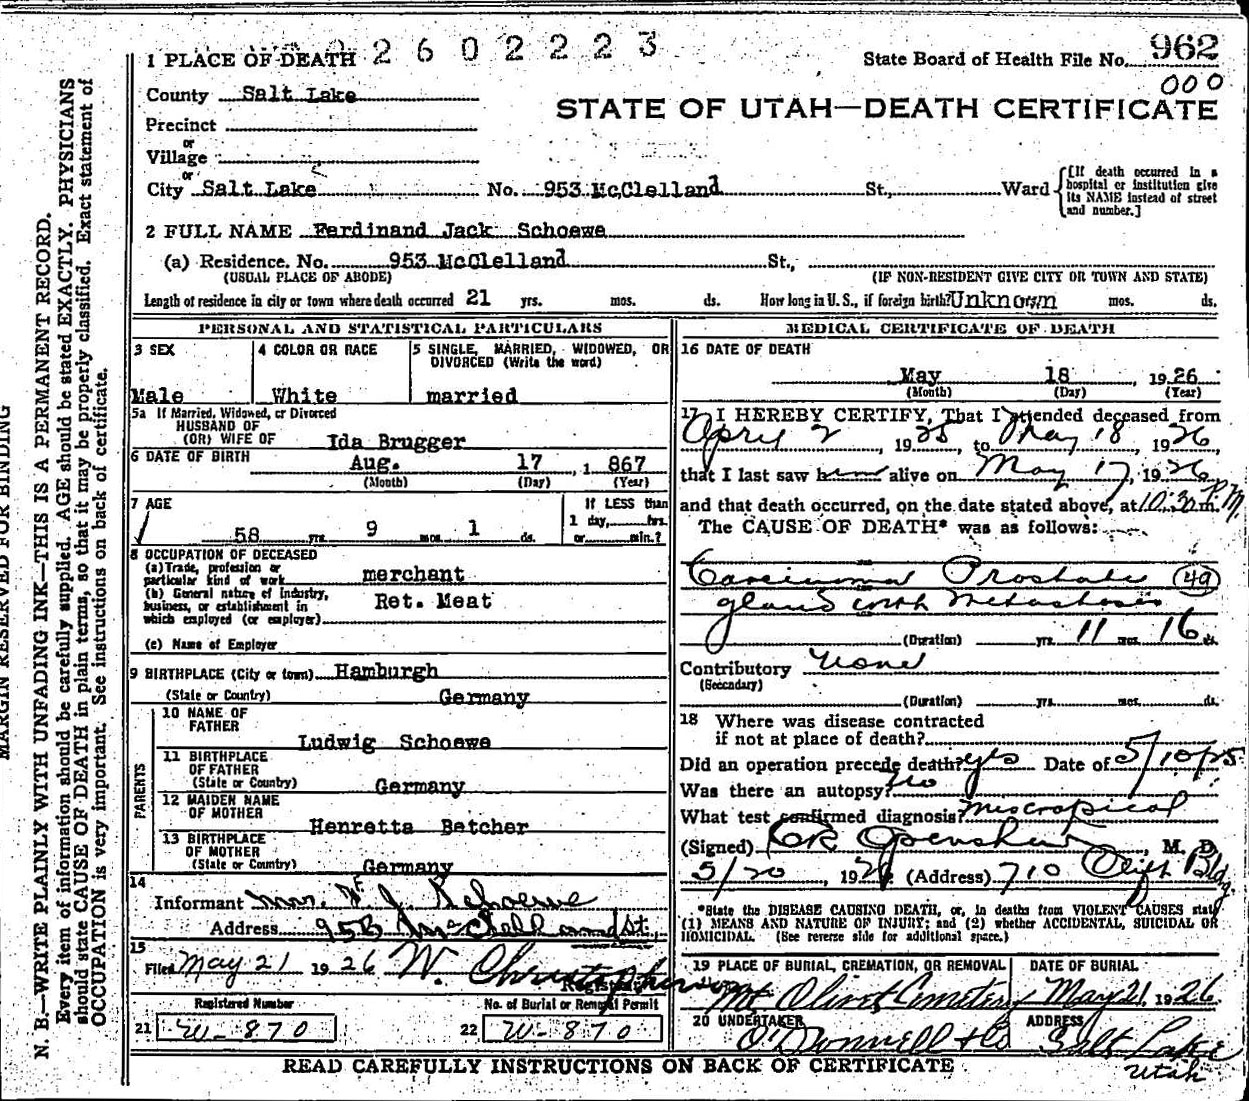 2602223
1 PLACE OF DEATH
State Board of Health File No. 962
000
County Salt Lake
STATE OF UTAH—DEATH CERTIFICATE
Precinct
or
Village
or
City Salt Lake No. 953 McClelland St., Ward
[If death occurred in a hospital or institution give its NAME instead of street and number.]
2 FULL NAME Ferdinand Jack Schoewe
(a) Residence. No. 953 McClelland St.,
(USUAL PLACE OF ABODE) (IF NON-RESIDENT GIVE CITY OR TOWN AND STATE)
Length of residence in city or town where death occurred 21 yrs. mos. ds. How long in U. S., if foreign birth? Unknown mos. ds.
PERSONAL AND STATISTICAL PARTICULARS
3 SEX
Male
4 COLOR OR RACE
White
5 SINGLE, MARRIED, WIDOWED, OR DIVORCED (Write the word)
married
5a If Married, Widowed, or Divorced
HUSBAND OF
(OR) WIFE OF Ida Brugger
6 DATE OF BIRTH Aug. 17, 1867
(Month) (Day) (Year)
7 AGE
58 yrs. 9 mos. 1 ds.
If LESS than
1 day, hrs.
or min.?
8 OCCUPATION OF DECEASED
(a) Trade, profession or
particular kind of work merchant
(b) General nature of industry,
business, or establishment in
which employed (or employer) Ret. Meat
(c) Name of Employer
9 BIRTHPLACE (City or town) Hamburgh
(State or Country) Germany
PARENTS
10 NAME OF
FATHER
Ludwig Schoewe
11 BIRTHPLACE
OF FATHER
(State or Country) Germany
12 MAIDEN NAME
OF MOTHER
Henretta Betcher
13 BIRTHPLACE
OF MOTHER
(State or Country) Germany
14
Informant Mrs. F. J. Schoewe
Address 953 McClelland St.
15
Filed May 21 1926 W. Christopherson
Registrar
Registered Number
21 W-870
No. of Burial or Removal Permit
22 W-870
MEDICAL CERTIFICATE OF DEATH
16 DATE OF DEATH
May 18, 1926
(Month) (Day) (Year)
17 I HEREBY CERTIFY, That I attended deceased from
April 2, 1925, to May 18 1926
that I last saw him alive on May 17, 1926
and that death occurred, on the date stated above, at 10:30 P.M.
The CAUSE OF DEATH* was as follows:
Carcinoma Prostate 49
gland with Metastasis
(Duration) yrs. 11 mos. 16 ds.
Contributory None
(Secondary)
(Duration) yrs. mos. ds.
18 Where was disease contracted
if not at place of death?
Did an operation precede death? yes Date of 5/10/25
Was there an autopsy? no
What test confirmed diagnosis? Miscropical
(Signed) Openshaw, M. D.
5/20, 192 (Address) 710 Clift Bldg.
*State the DISEASE CAUSING DEATH, or, in deaths from VIOLENT CAUSES state
(1) MEANS AND NATURE OF INJURY; and (2) whether ACCIDENTAL, SUICIDAL OR
HOMICIDAL. (See reverse side for additional space.)
19 PLACE OF BURIAL, CREMATION, OR REMOVAL
Mt Olivet Cemetery
DATE OF BURIAL
May 21, 1926
20 UNDERTAKER
O'Donnell & Co
ADDRESS
Salt Lake
Utah
READ CAREFULLY INSTRUCTIONS ON BACK OF CERTIFICATE
MARGIN RESERVED FOR BINDING
N. B.—WRITE PLAINLY WITH UNFADING INK—THIS IS A PERMANENT RECORD.
Every item of information should be carefully supplied. AGE should be stated EXACTLY. PHYSICIANS
should state CAUSE OF DEATH in plain terms, so that it may be properly classified. Exact statement of
OCCUPATION is very important. See instructions on back of certificate.